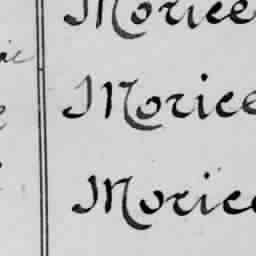 Morice
Morice
Morice